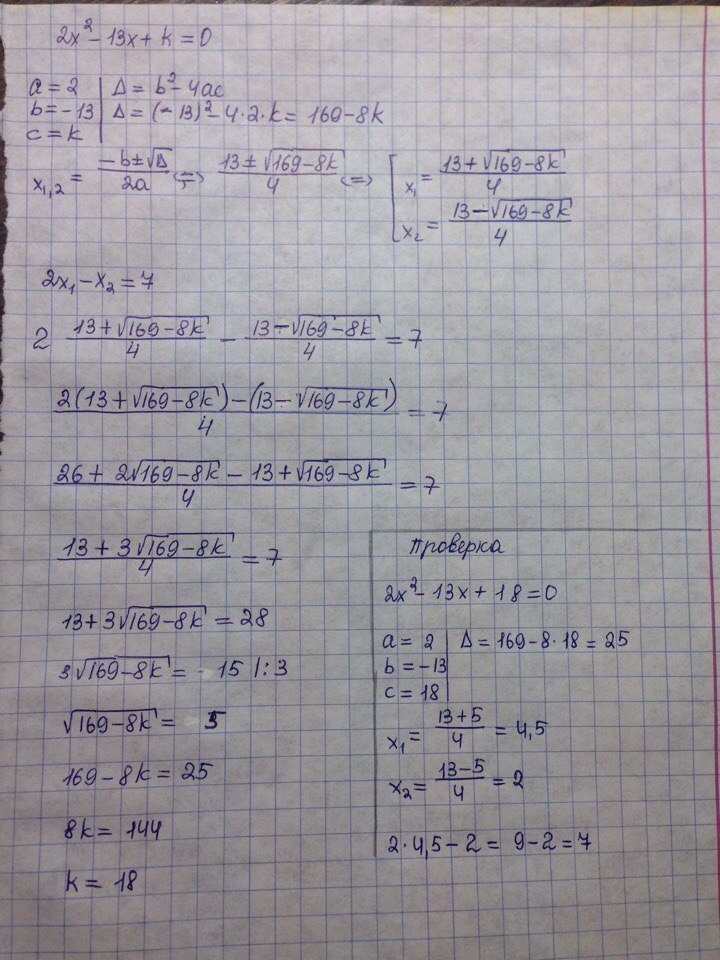 2x² - 13x + k = 0
a = 2 | Δ = b² - 4ac
b = -13 | Δ = (-13)² - 4·2·k = 169 - 8k
c = k
x₁,₂ = (-b ± √Δ)/2a ⇔ (13 ± √(169 - 8k))/4 ⇔ [ x₁ = (13 + √(169 - 8k))/4
x₂ = (13 - √(169 - 8k))/4
2x₁ - x₂ = 7
2 (13 + √(169 - 8k))/4 - (13 - √(169 - 8k))/4 = 7
(2(13 + √(169 - 8k)) - (13 - √(169 - 8k)))/4 = 7
(26 + 2√(169 - 8k) - 13 + √(169 - 8k))/4 = 7
(13 + 3√(169 - 8k))/4 = 7
13 + 3√(169 - 8k) = 28
3√(169 - 8k) = 15 |:3
√(169 - 8k) = 5
169 - 8k = 25
8k = 144
k = 18
Проверка
2x² - 13x + 18 = 0
a = 2 | Δ = 169 - 8·18 = 25
b = -13
c = 18
x₁ = (13 + 5)/4 = 4,5
x₂ = (13 - 5)/4 = 2
2·4,5 - 2 = 9 - 2 = 7